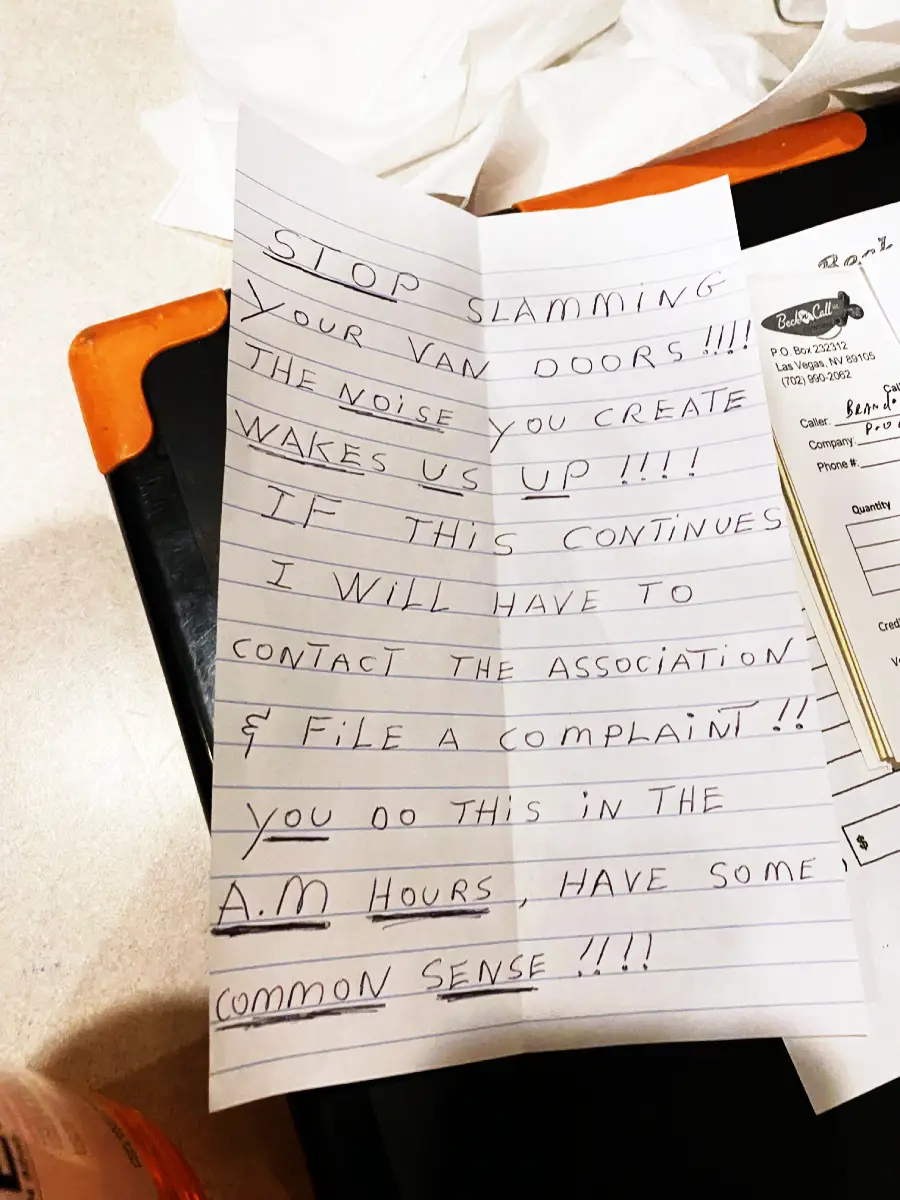 STOP SLAMMING
YOUR VAN DOORS !!!!
THE NOISE YOU CREATE
WAKES US UP !!!!
IF THIS CONTINUES
I WILL HAVE TO
CONTACT THE ASSOCIATION
& FILE A COMPLAINT !!
YOU DO THIS IN THE
A.M HOURS, HAVE SOME
COMMON SENSE !!!!
Beck Call
P.O. Box 232312
Las Vegas, NV 89105
(702) 990-2062
Caller:
Company:
Phone #:
Quantity
$